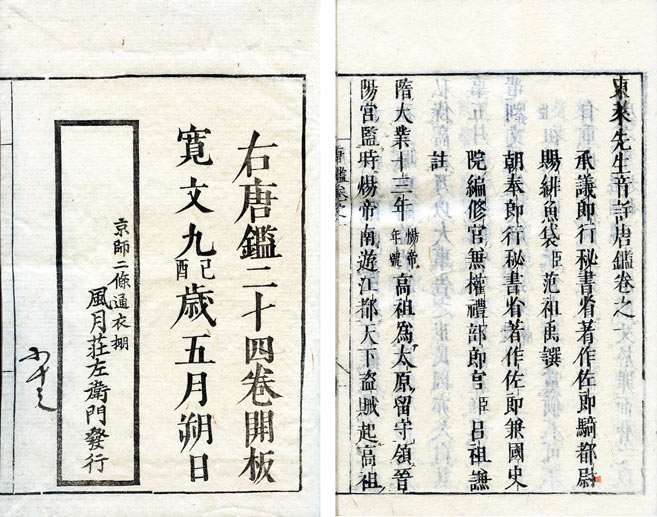 東萊先生音註唐鑑卷之一
承議郎行秘書省著作佐郎騎都尉
賜緋魚袋臣范祖禹譔
朝奉郎行秘書省著作佐郎兼國史
院編修官兼權禮部郎官臣呂祖謙
註
隋大業十三年煬帝年號高祖為太原留守領晉
陽宮監時煬帝南遊江都天下盜賊起高祖
唐鑑卷之
右唐鑑二十四卷開板
寛文九己酉歲五月朔日
京師二條通衣棚
風月荘左衛門發行